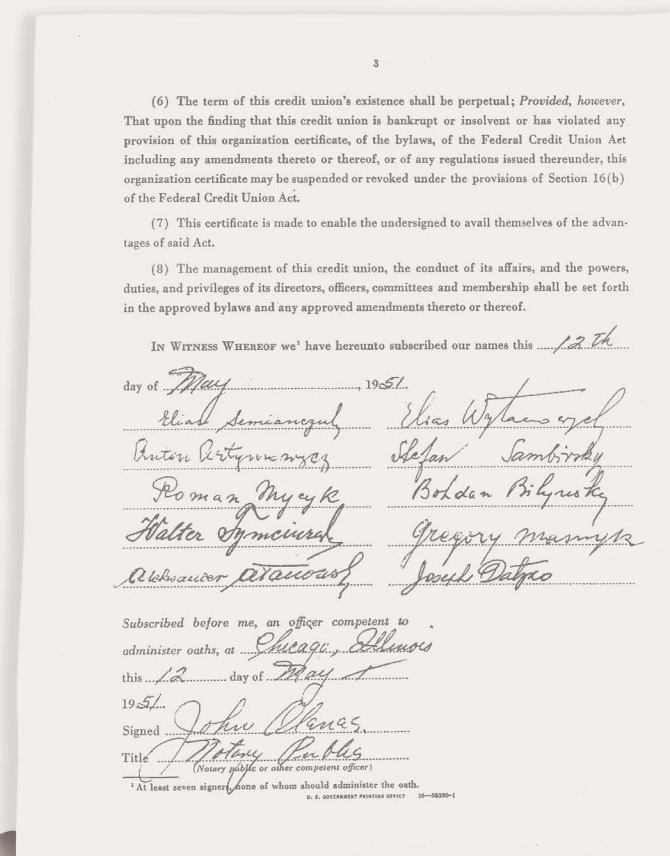 3
(6) The term of this credit union's existence shall be perpetual; Provided, however,
That upon the finding that this credit union is bankrupt or insolvent or has violated any
provision of this organization certificate, of the bylaws, of the Federal Credit Union Act
including any amendments thereto or thereof, or of any regulations issued thereunder, this
organization certificate may be suspended or revoked under the provisions of Section 16(b)
of the Federal Credit Union Act.
(7) This certificate is made to enable the undersigned to avail themselves of the advan-
tages of said Act.
(8) The management of this credit union, the conduct of its affairs, and the powers,
duties, and privileges of its directors, officers, committees and membership shall be set forth
in the approved bylaws and any approved amendments thereto or thereof.
IN WITNESS WHEREOF we¹ have hereunto subscribed our names this 12th
day of May, 1951.
Elias Elias
Anton Stefan Sambirsky
Roman Mycyk Bohdan
Walter Gregory
Joseph
Subscribed before me, an officer competent to
administer oaths, at Chicago, Illinois
this 12 day of May
1951.
Signed John
Title Notary Public
(Notary public or other competent officer)
¹ At least seven signers, none of whom should administer the oath.
U. S. GOVERNMENT PRINTING OFFICE 16—58330-1